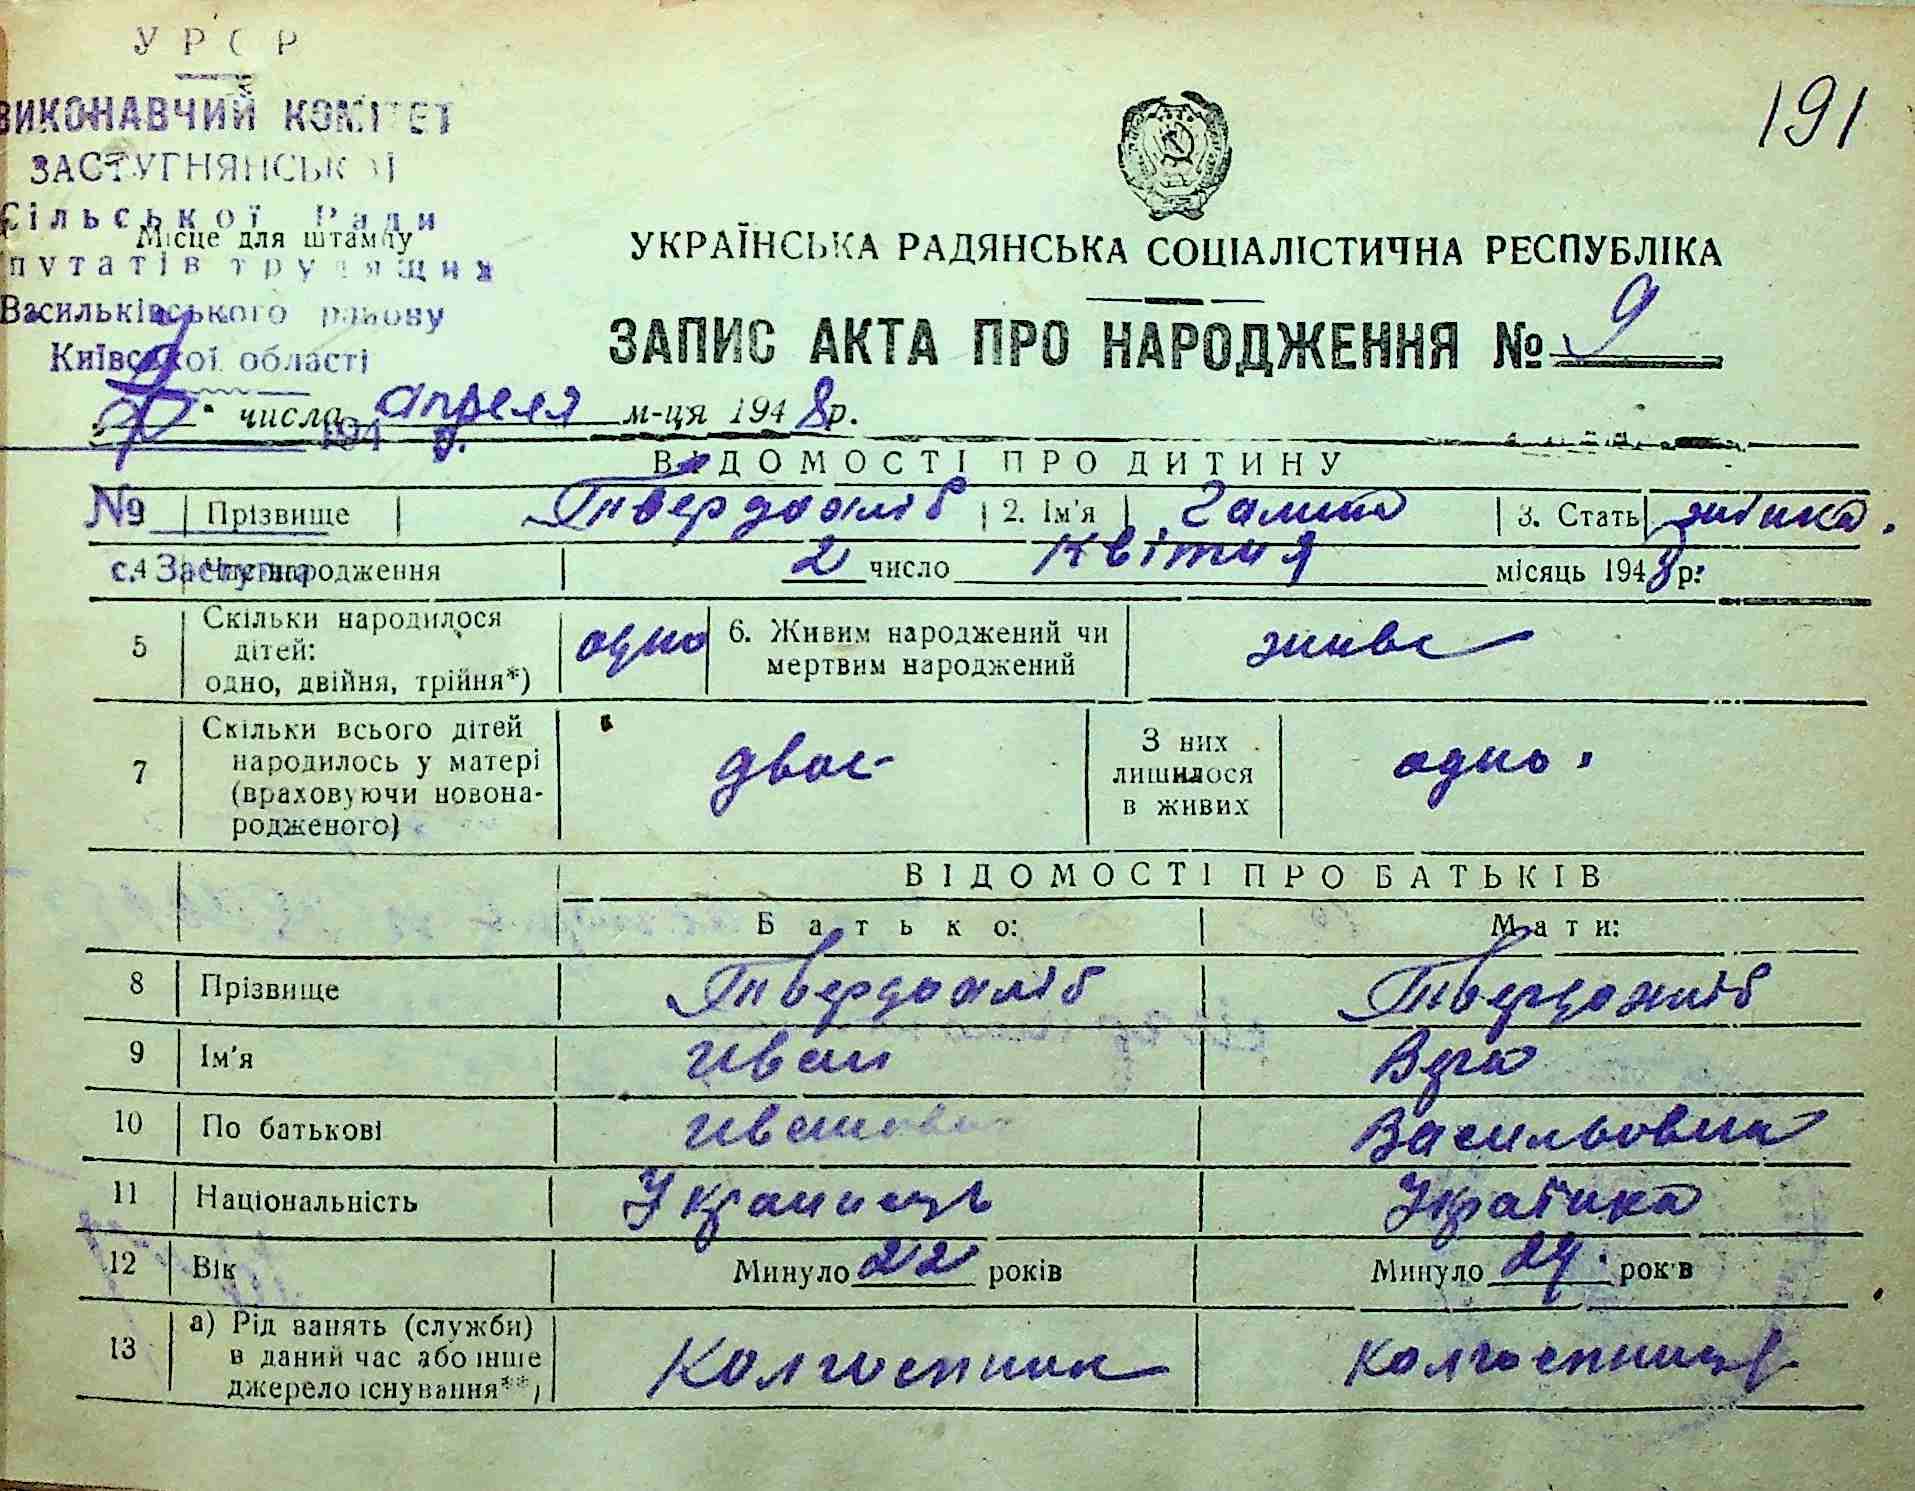 У Р С Р
ВИКОНАВЧИЙ КОМІТЕТ
ЗАСТУГНЯНСЬКОЇ
Сільської Ради
путатів трудящих
Васильківського району
Київської області
194 р.
№ 9
с. Застугна
191
Місце для штампу
УКРАЇНСЬКА РАДЯНСЬКА СОЦІАЛІСТИЧНА РЕСПУБЛІКА
ЗАПИС АКТА ПРО НАРОДЖЕННЯ № 9
числа апреля м-ця 1948 р.
ВІДОМОСТІ ПРО ДИТИНУ
Прізвище Твердохліб 2. Ім'я Галина 3. Стать жінка.
4 Час народження 2 число квітня місяць 1948 р.
5 Скільки народилося дітей: одно, двійня, трійня*) одно 6. Живим народжений чи мертвим народжений живе
7 Скільки всього дітей народилось у матері (враховуючи новонародженого) двоє З них лишилося в живих одно.
ВІДОМОСТІ ПРО БАТЬКІВ
Батько: Мати:
8 Прізвище Твердохліб Твердохліб
9 Ім'я Иван Вера
10 По батькові Иванович Васильовна
11 Національність Украинець Украінка
12 Вік Минуло 22 років Минуло 24 років
13 а) Рід занять (служби) в даний час або інше джерело існування**) Колгоспник Колгоспниця